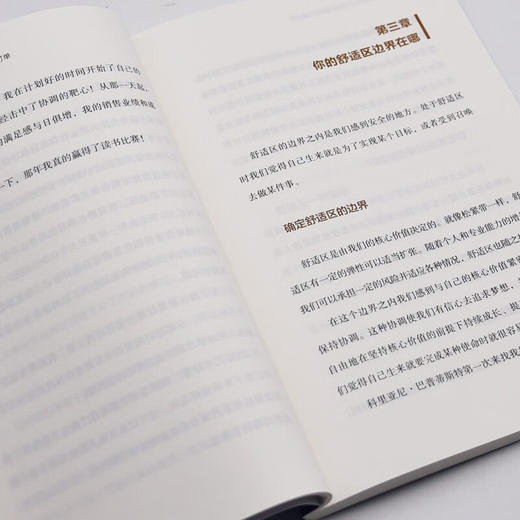 我在计划好的时间开始了自己的
击中了协调的靶心！从那一天起，
满足感与日俱增，我的销售业绩和
一下，那年我真的赢得了读书比赛！
第三章
你的舒适区边界在哪
舒适区的边界之内是我们感到安全的地方。处于舒适区
时我们觉得自己生来就是为了实现某个目标，或者受到召唤
去做某件事。
确定舒适区的边界
舒适区是由我们的核心价值决定的。就像松紧带一样，舒
适区有一定的弹性可以适当扩张。随着个人和专业能力的增
我们可以承担一定的风险并适应各种情况，舒适区也随之
保持协调。
在这个边界之内我们感到与自己的核心价值紧密
协调。这种协调使我们有信心去追求梦想，
自由地在坚持核心价值的前提下持续成长、提
们觉得自己生来就要完成某种使命时就很容易
科里亚尼·巴普蒂斯特第一次来找我